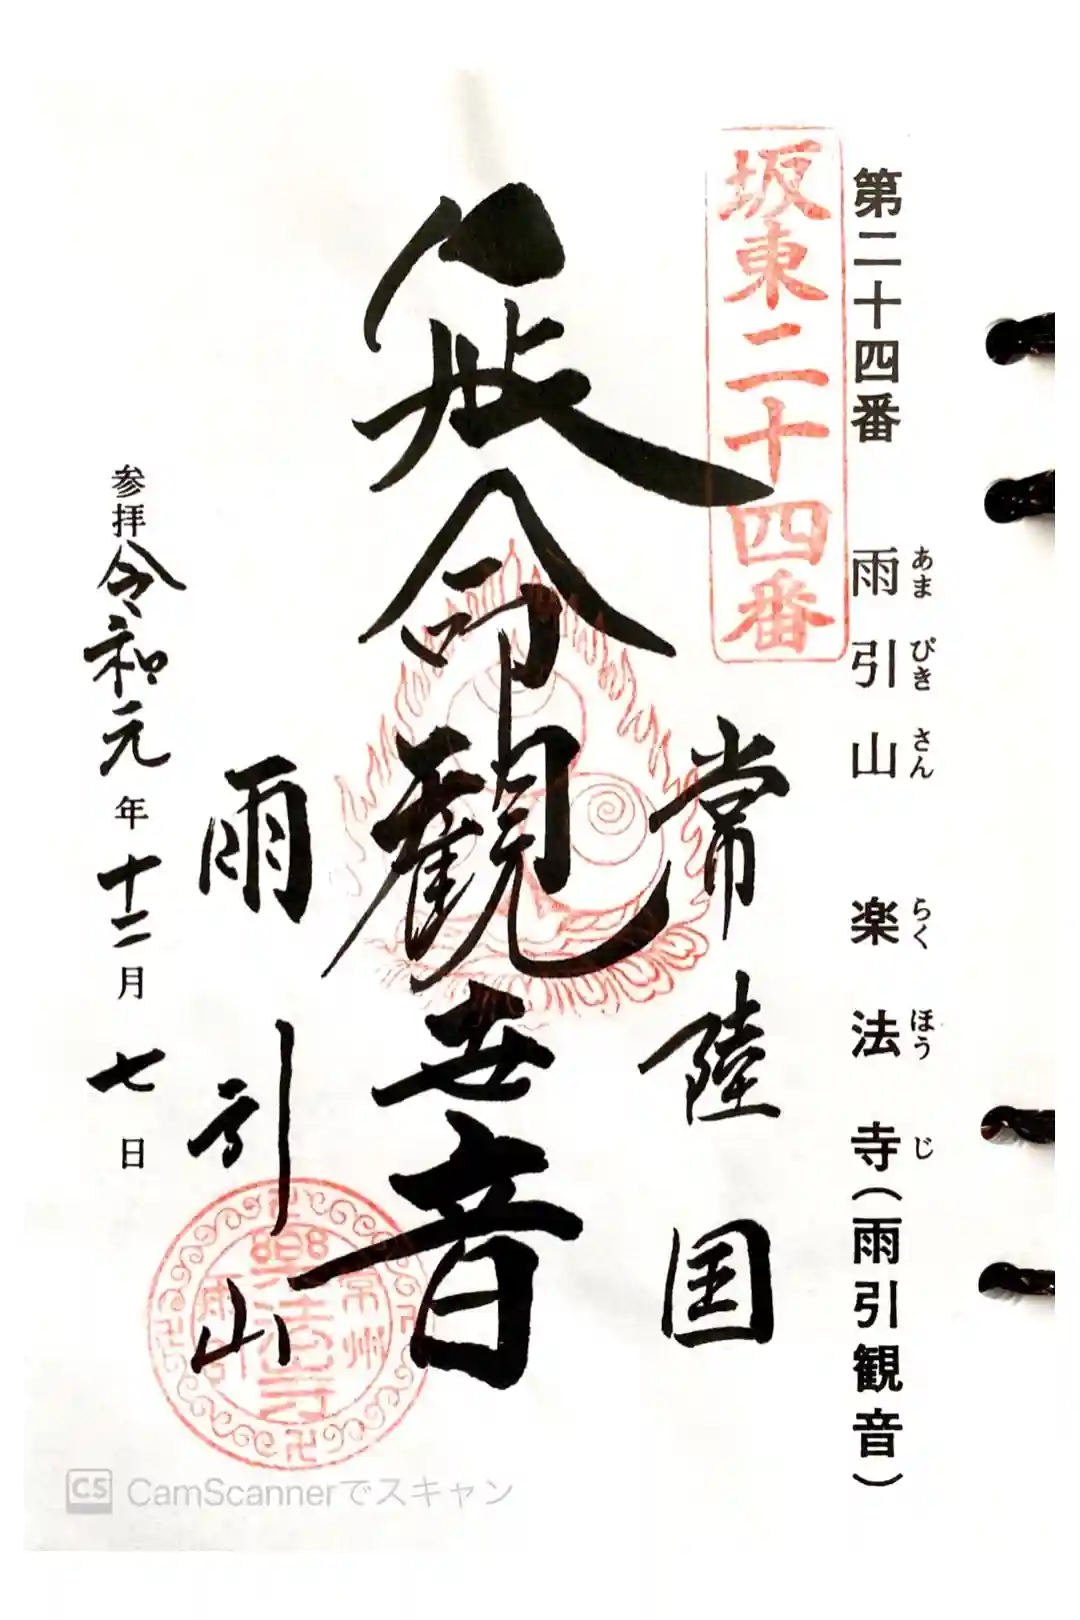 あまびきさん　らくほうじ
第二十四番　雨引山　楽法寺(雨引観音)
坂東二十四番
常陸国
延命観世音
雨引山
常州
樂法寺
雨引
参拝令和元年十二月七日
CS CamScannerでスキャン